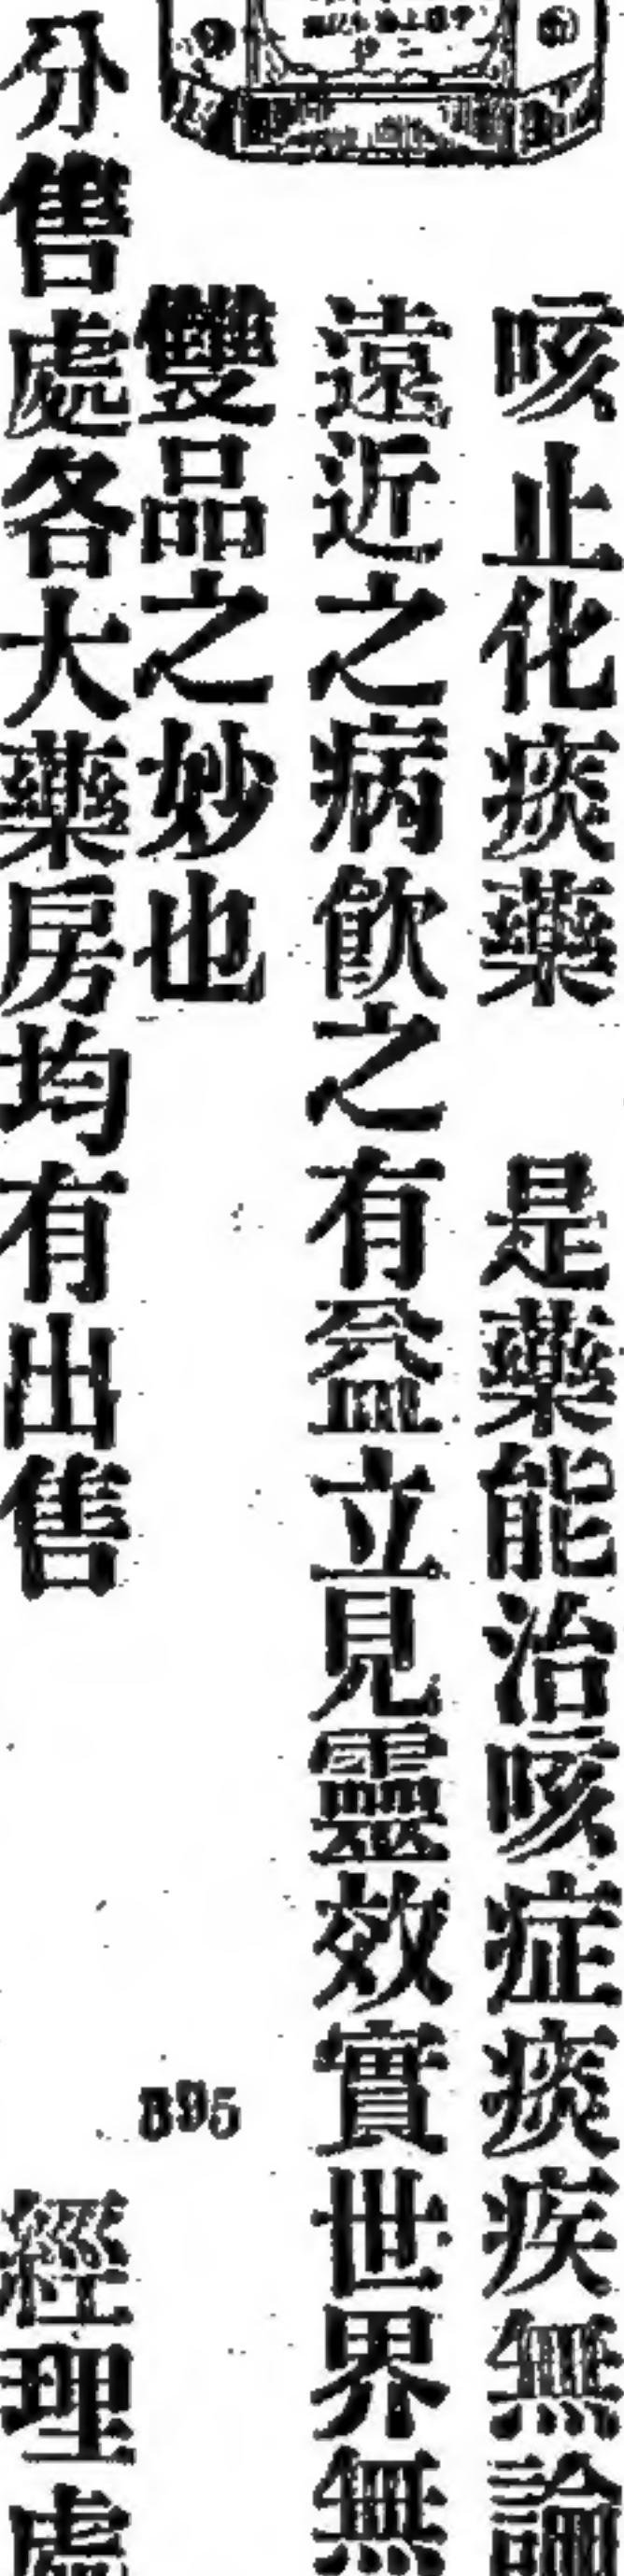 咳止化痰藥 是藥能治咳症痰疾無論
遠近之病飲之有益立見靈效實世界無
雙品之妙也
395
分售處各大藥房均有出售 經理處